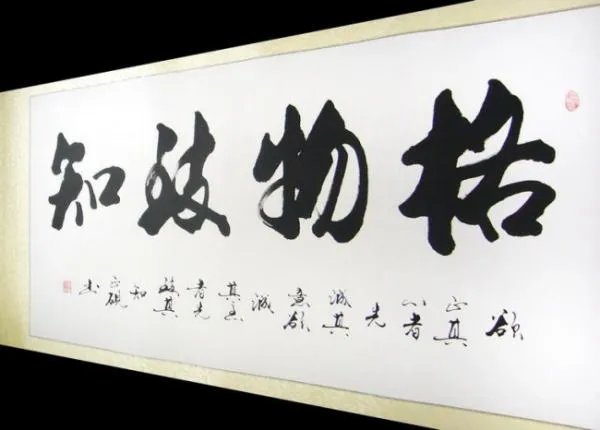 格物致知
欲正其心者先诚其意欲诚其意者先致其知
正砚书